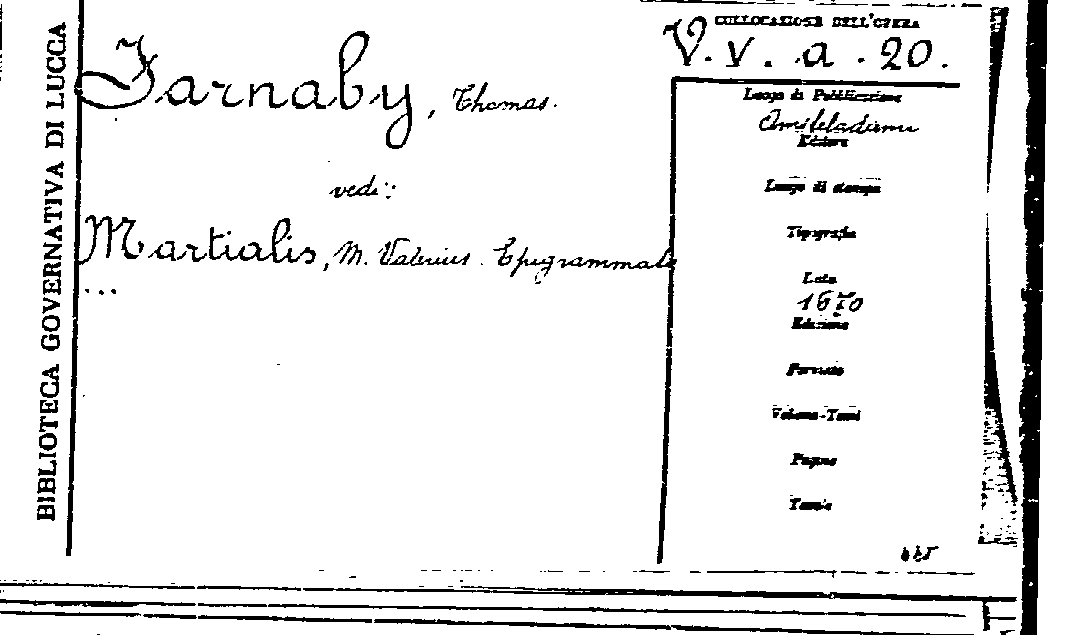 BIBLIOTECA GOVERNATIVA DI LUCCA
Farnaby, Thomas.
vedi:
Martialis, M. Valerius. Epigrammata
...
COLLOCAZIONE DELL'OPERA
V. v. a. 20.
Luogo di Pubblicazione
Amsteladami
Editore
Luogo di stampa
Tipografia
Data
1670
Edizione
Formato
Volume-Tomi
Pagine
Tavole